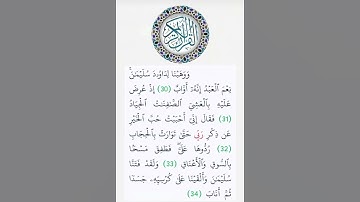 القرآن الكريم
وَوَهَبْنَا لِدَاوُۥدَ سُلَيْمَٰنَۚ
نِعْمَ ٱلْعَبْدُ إِنَّهُۥٓ أَوَّابٌ (30) إِذْ عُرِضَ
عَلَيْهِ بِٱلْعَشِيِّ ٱلصَّٰفِنَٰتُ ٱلْجِيَادُ
(31) فَقَالَ إِنِّىٓ أَحْبَبْتُ حُبَّ ٱلْخَيْرِ
عَن ذِكْرِ رَبِّى حَتَّىٰ تَوَارَتْ بِٱلْحِجَابِ
(32) رُدُّوهَا عَلَىَّۖ فَطَفِقَ مَسْحًۢا
بِٱلسُّوقِ وَٱلْأَعْنَاقِ (33) وَلَقَدْ فَتَنَّا
سُلَيْمَٰنَ وَأَلْقَيْنَا عَلَىٰ كُرْسِيِّهِۦ جَسَدًا
ثُمَّ أَنَابَ (34)